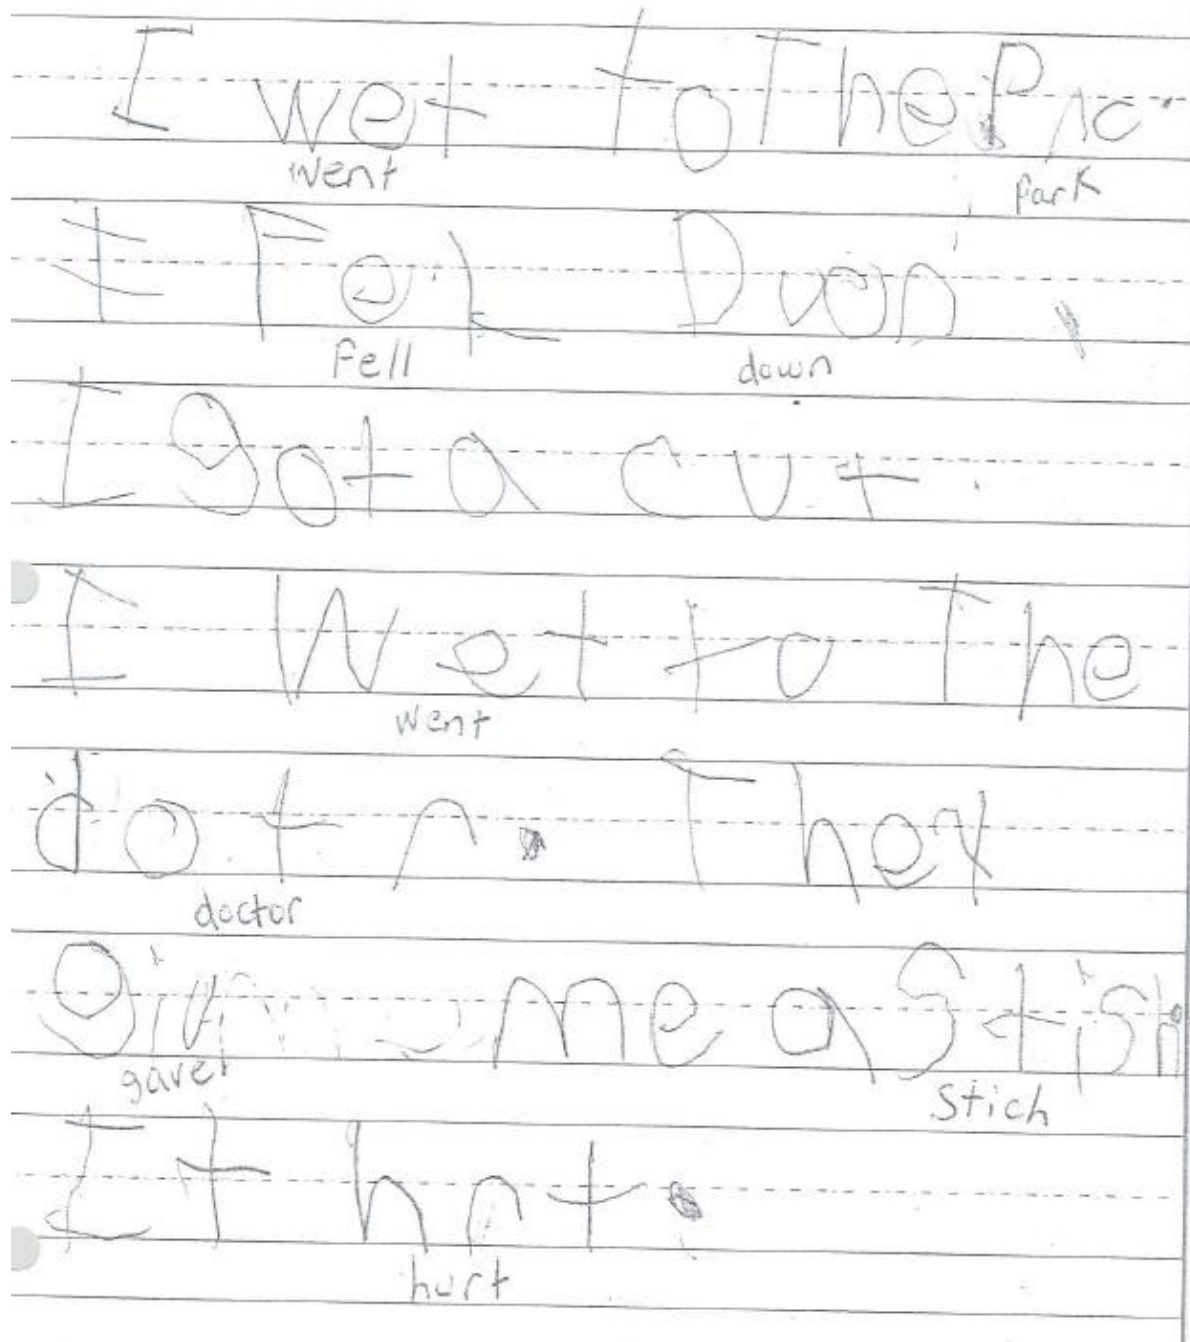 I wet to The Prc.
went park
I Fel Doon.
fell down
I gota cut.
I Wet to The
went
dotr. They
doctor
giv me a Stish
gave Stich
It hrt.
hurt